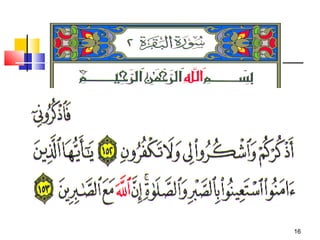 سُورَةُ البَقَرَةِ ٢
بِسْمِ ٱللَّهِ ٱلرَّحْمَٰنِ ٱلرَّحِيمِ
فَٱذْكُرُونِىٓ
أَذْكُرْكُمْ وَٱشْكُرُوا۟ لِى وَلَا تَكْفُرُونِ ١٥٢ يَٰٓأَيُّهَا ٱلَّذِينَ
ءَامَنُوا۟ ٱسْتَعِينُوا۟ بِٱلصَّبْرِ وَٱلصَّلَوٰةِ ۚ إِنَّ ٱللَّهَ مَعَ ٱلصَّٰبِرِينَ ١٥٣
16